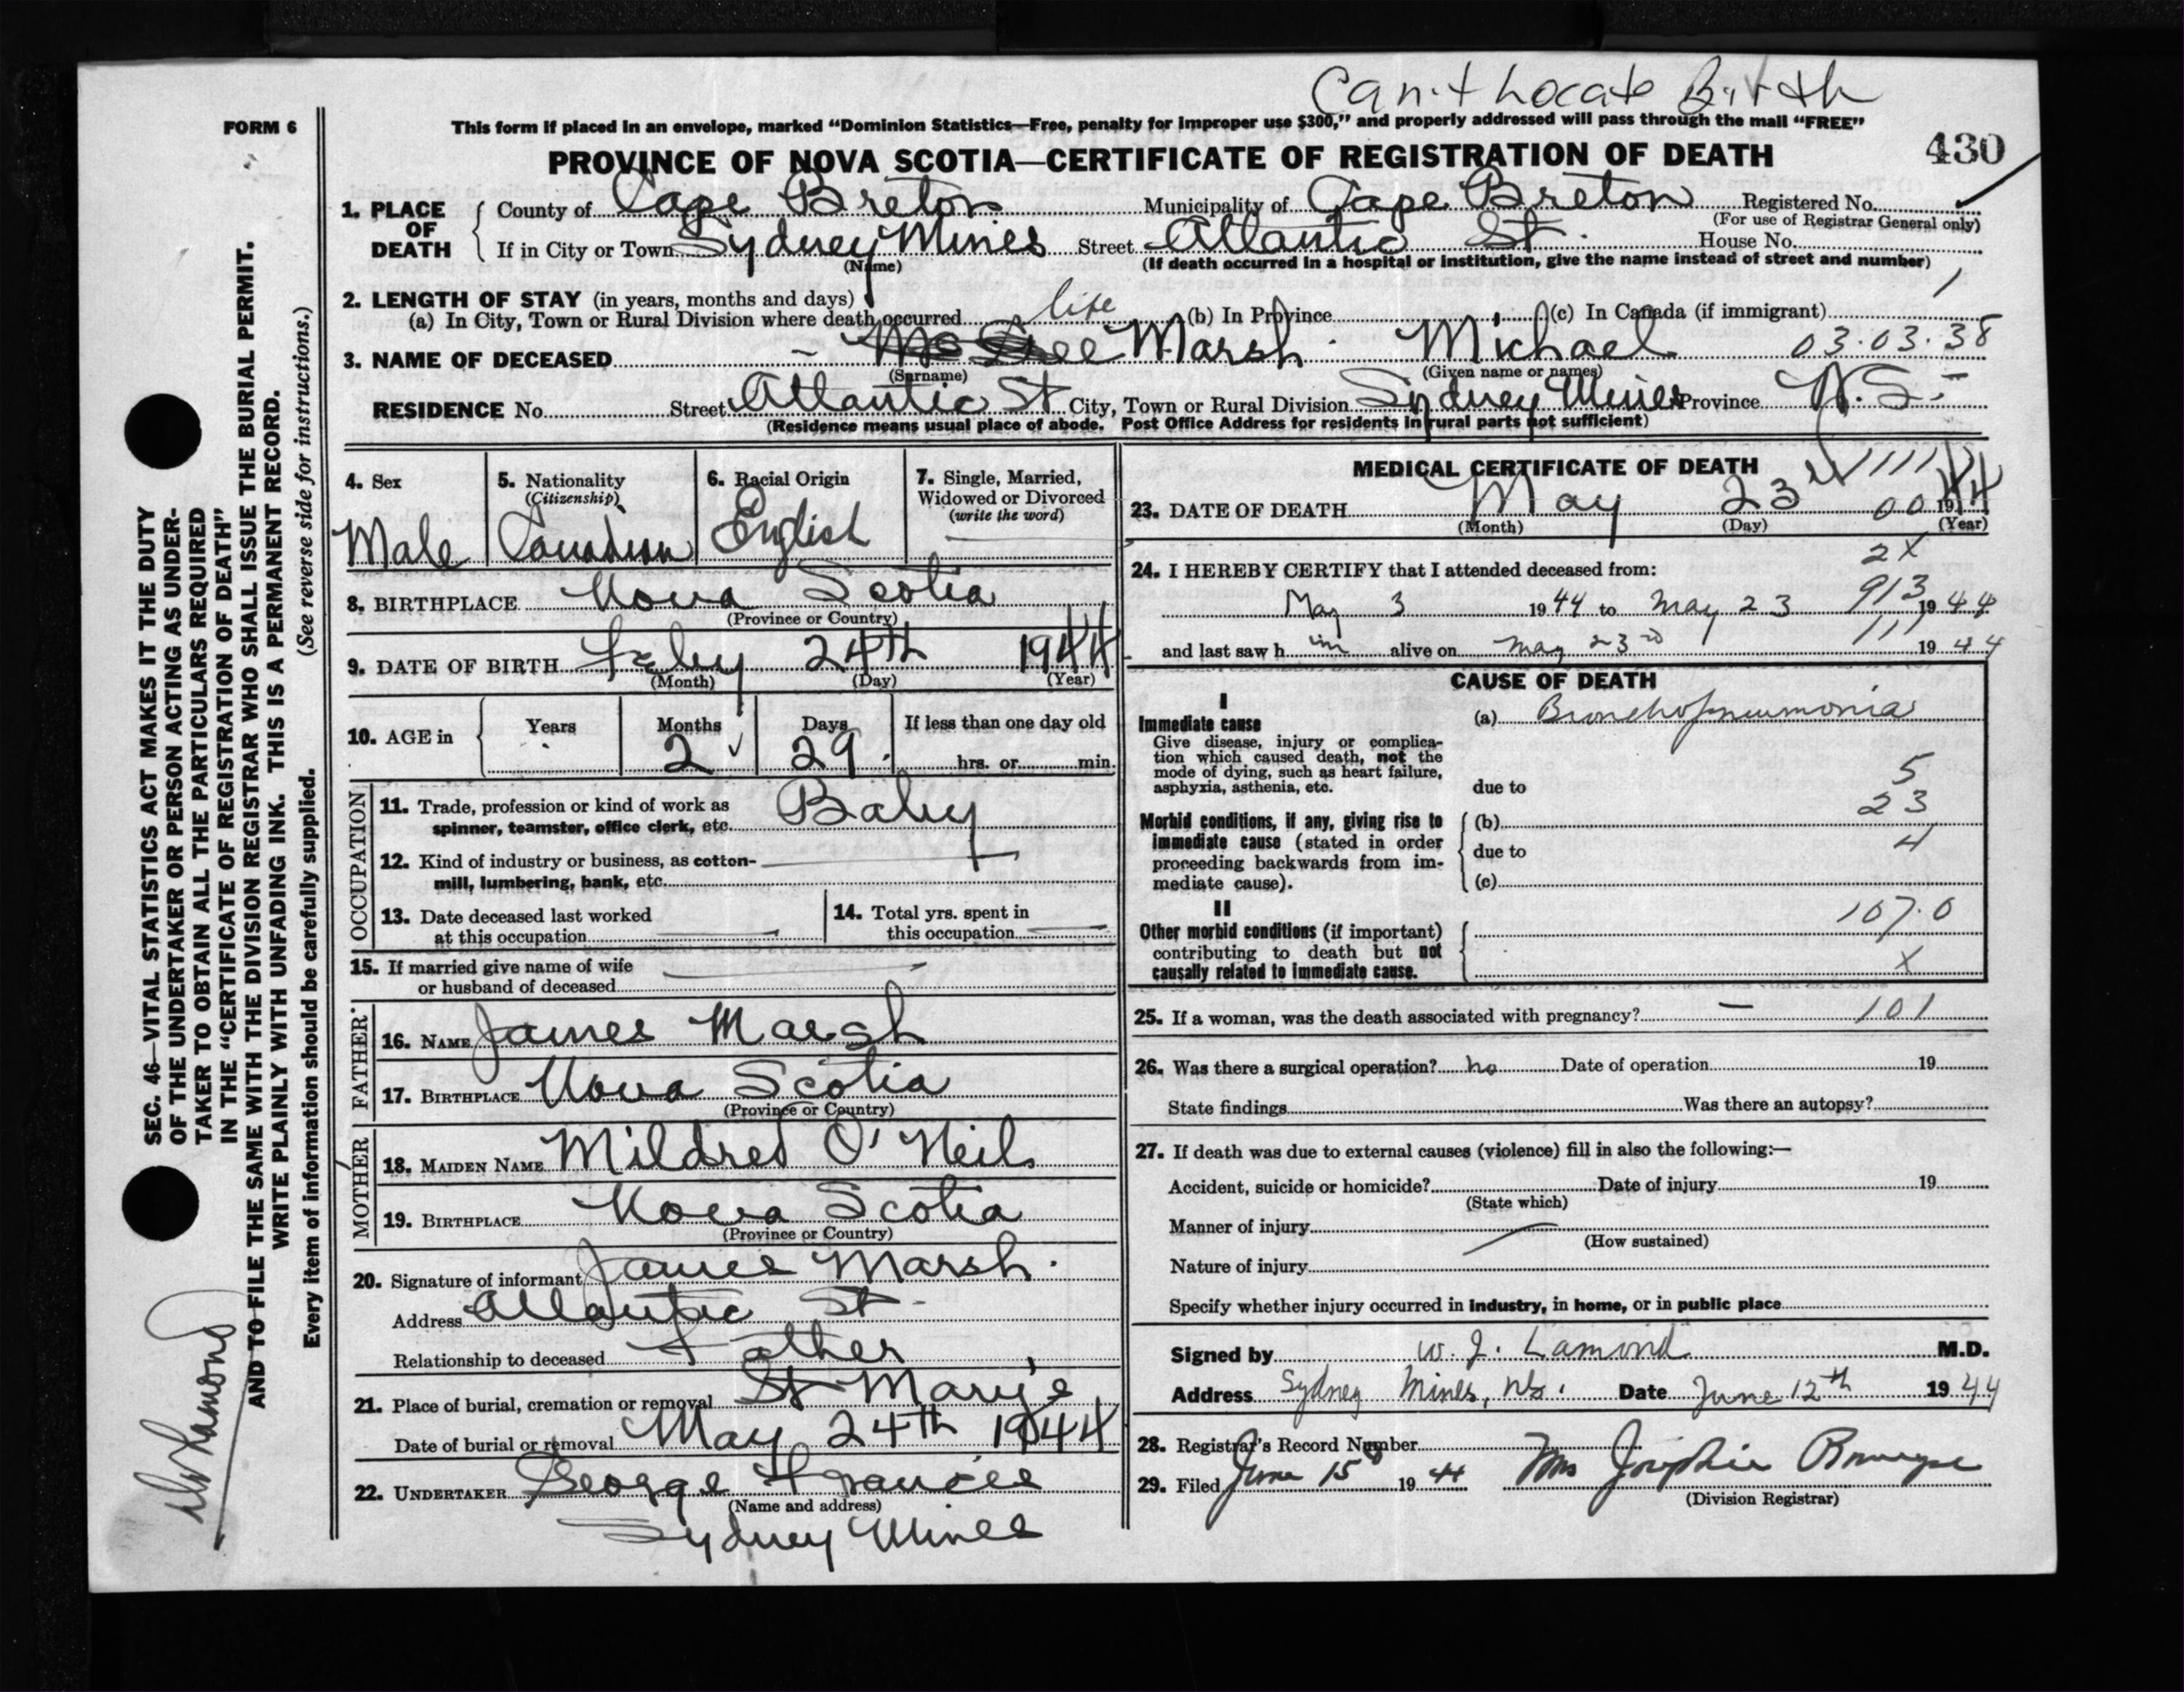 Can't Locate Birth
FORM 6
This form if placed in an envelope, marked “Dominion Statistics—Free, penalty for improper use $300,” and properly addressed will pass through the mail “FREE”
PROVINCE OF NOVA SCOTIA—CERTIFICATE OF REGISTRATION OF DEATH
430
1. PLACE OF DEATH { County of Cape Breton Municipality of Cape Breton Registered No.
(For use of Registrar General only)
If in City or Town Sydney Mines Street Atlantic St. House No.
(Name) (If death occurred in a hospital or institution, give the name instead of street and number)
2. LENGTH OF STAY (in years, months and days)
(a) In City, Town or Rural Division where death occurred life (b) In Province (c) In Canada (if immigrant) 1
3. NAME OF DECEASED Marsh Michael 03.03.38
(Surname) (Given name or names)
RESIDENCE No. Street Atlantic St City, Town or Rural Division Sydney Mines Province N.S.
(Residence means usual place of abode. Post Office Address for residents in rural parts not sufficient)
4. Sex 5. Nationality (Citizenship) 6. Racial Origin 7. Single, Married, Widowed or Divorced (write the word)
Male Canadian English —
8. BIRTHPLACE Nova Scotia
(Province or Country)
9. DATE OF BIRTH Feby 24th 1944
(Month) (Day) (Year)
10. AGE in { Years Months Days If less than one day old
2 29 hrs. or min.
OCCUPATION
11. Trade, profession or kind of work as spinner, teamster, office clerk, etc. Baby
12. Kind of industry or business, as cotton-mill, lumbering, bank, etc.
13. Date deceased last worked at this occupation
14. Total yrs. spent in this occupation
15. If married give name of wife or husband of deceased
FATHER
16. NAME James Marsh
17. BIRTHPLACE Nova Scotia
(Province or Country)
MOTHER
18. MAIDEN NAME Mildred O'Neil
19. BIRTHPLACE Nova Scotia
(Province or Country)
20. Signature of informant James Marsh.
Address Atlantic St
Relationship to deceased Father
21. Place of burial, cremation or removal St Mary's
Date of burial or removal May 24th 1944
22. UNDERTAKER George Francis
(Name and address)
Sydney Mines
MEDICAL CERTIFICATE OF DEATH
23. DATE OF DEATH May 23 00 1944
(Month) (Day) (Year)
2X
24. I HEREBY CERTIFY that I attended deceased from:
May 3 1944 to May 23 913 1944
and last saw h im alive on May 23rd 111 1944
CAUSE OF DEATH
I
Immediate cause (a) Bronchopneumonia
Give disease, injury or complication which caused death, not the mode of dying, such as heart failure, asphyxia, asthenia, etc.
due to 5
23
Morbid conditions, if any, giving rise to immediate cause (stated in order proceeding backwards from immediate cause). { (b)
due to 4
(c)
II
107.0
Other morbid conditions (if important) contributing to death but not causally related to immediate cause. {
X
25. If a woman, was the death associated with pregnancy? — 101
26. Was there a surgical operation? no Date of operation 19
State findings Was there an autopsy?
27. If death was due to external causes (violence) fill in also the following:—
Accident, suicide or homicide? Date of injury 19
(State which)
Manner of injury
(How sustained)
Nature of injury
Specify whether injury occurred in industry, in home, or in public place
Signed by W. J. Lamond M.D.
Address Sydney Mines, NS. Date June 12th 1944
28. Registrar's Record Number
29. Filed June 15 1944 Mrs Josephine
(Division Registrar)
SEC. 46—VITAL STATISTICS ACT MAKES IT THE DUTY
OF THE UNDERTAKER OR PERSON ACTING AS UNDER-
TAKER TO OBTAIN ALL THE PARTICULARS REQUIRED
IN THE “CERTIFICATE OF REGISTRATION OF DEATH”
AND TO FILE THE SAME WITH THE DIVISION REGISTRAR WHO SHALL ISSUE THE BURIAL PERMIT.
WRITE PLAINLY WITH UNFADING INK. THIS IS A PERMANENT RECORD.
Every item of information should be carefully supplied. (See reverse side for instructions.)
Dr Lamond